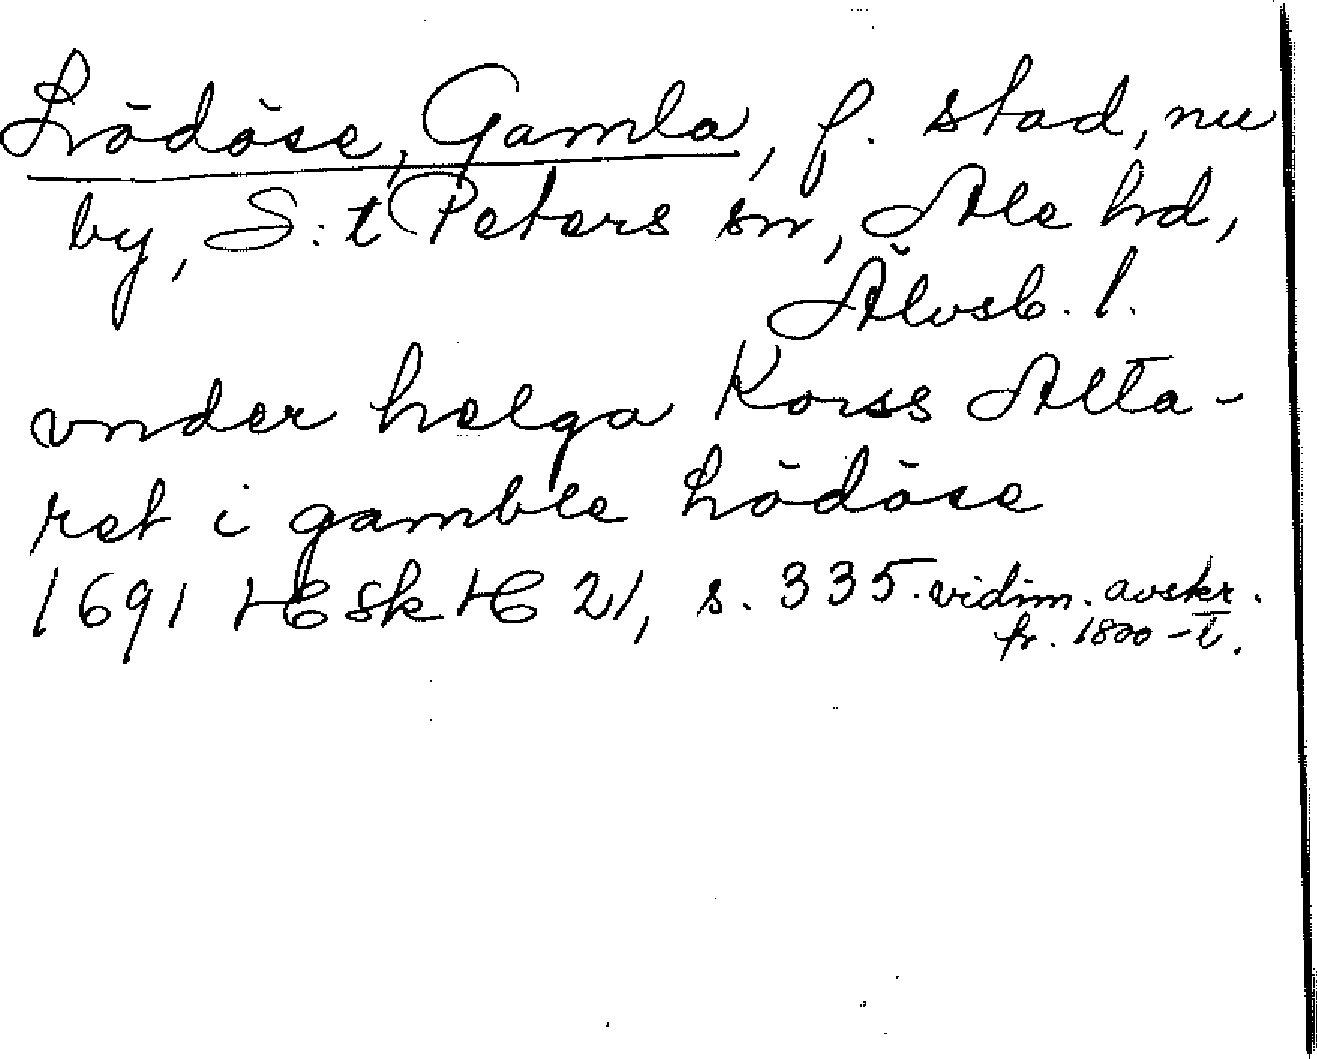 Lödöse, Gamla, f. stad, nu
by, S:t Peters sn, Ale hd,
Älvsb. l.
vnder helga Korss Alta-
ret i gamble Lödöse
1691 HE sk HC 21, s. 335. vidim. avskr.
fr. 1800-t.